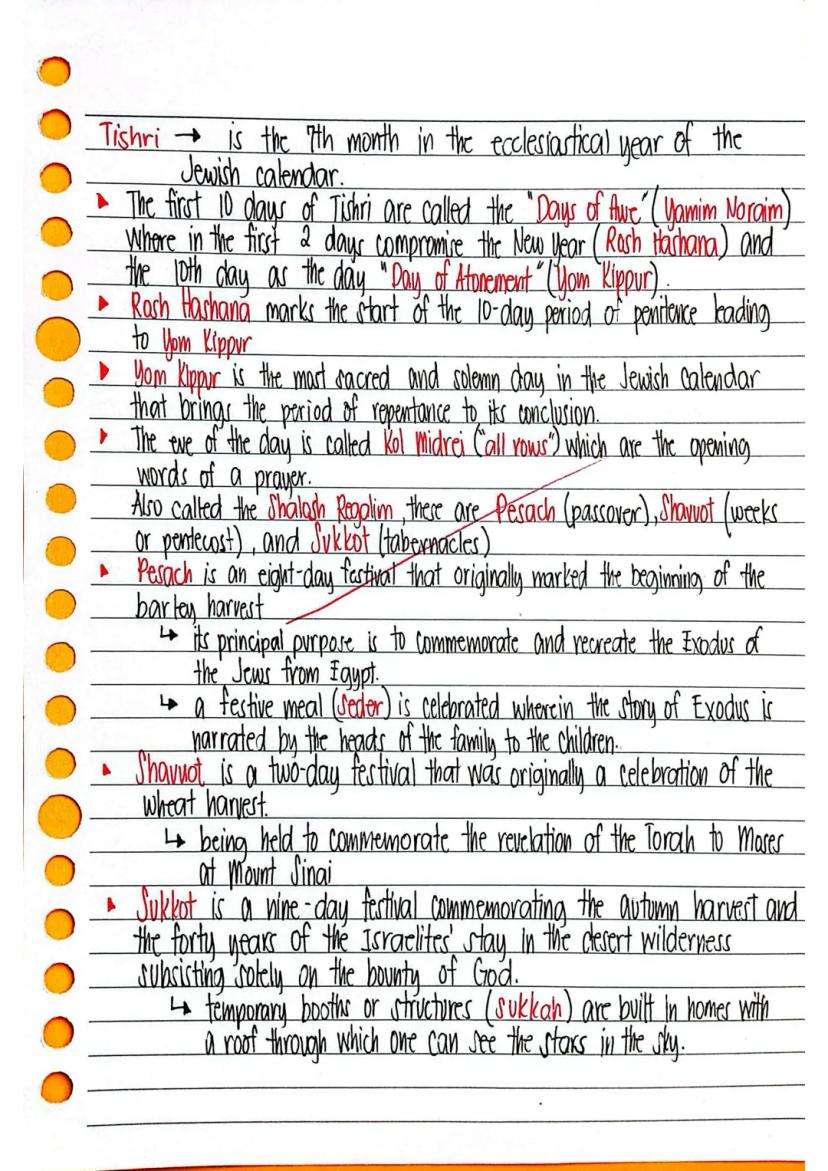 Tishri → is the 7th month in the ecclesiastical year of the
Jewish calendar.
▸ The first 10 days of Tishri are called the "Days of Awe" (Yamim Noraim)
where in the first 2 days compromise the New Year (Rosh Hashana) and
the 10th day as the day "Day of Atonement" (Yom Kippur).
▸ Rosh Hashana marks the start of the 10-day period of penitence leading
to Yom Kippur
▸ Yom Kippur is the most sacred and solemn day in the Jewish Calendar
that brings the period of repentance to its conclusion.
▸ The eve of the day is called Kol Midrei ("all vows") which are the opening
words of a prayer.
Also called the Shalosh Regalim, these are Pesach (passover), Shavuot (weeks
or pentecost), and Sukkot (tabernacles)
▸ Pesach is an eight-day festival that originally marked the beginning of the
barley harvest
↳ its principal purpose is to commemorate and recreate the Exodus of
the Jews from Egypt.
↳ a festive meal (seder) is celebrated wherein the story of Exodus is
narrated by the heads of the family to the children.
▸ Shavuot is a two-day festival that was originally a celebration of the
wheat harvest.
↳ being held to commemorate the revelation of the Torah to Moses
at Mount Sinai
▸ Sukkot is a nine-day festival commemorating the autumn harvest and
the forty years of the Israelites' stay in the desert wilderness
subsisting solely on the bounty of God.
↳ temporary booths or structures (sukkah) are built in homes with
a roof through which one can see the stars in the sky.